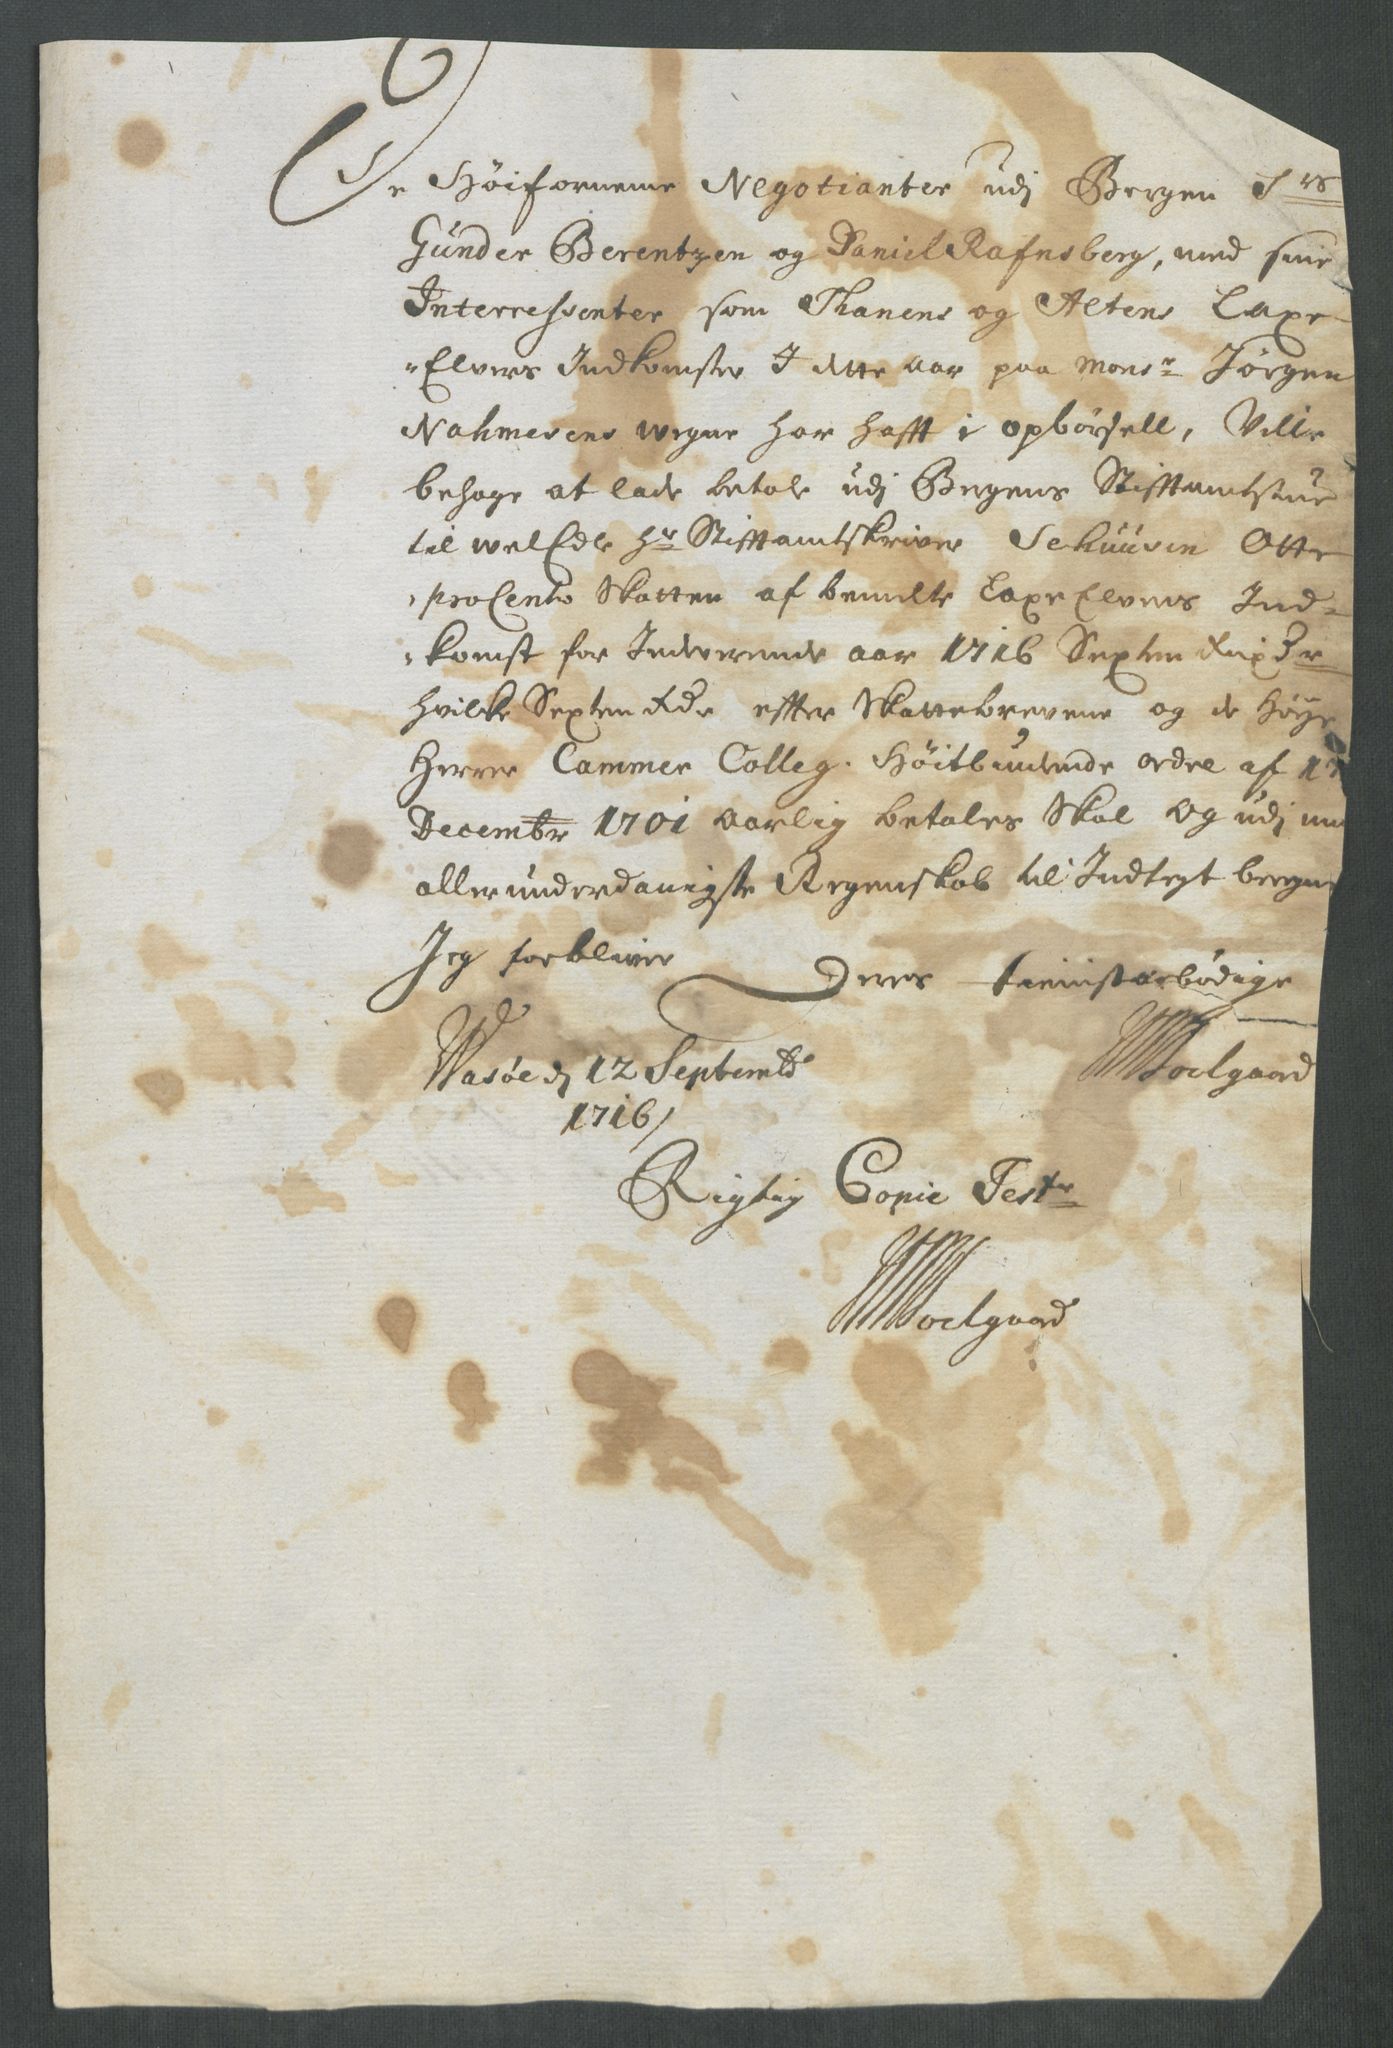 De Höifornemme Negotianter udj Bergen Srs
Gunder Berentzen og Daniel Rafnsberg, med sine
Interressenter som Thanens og Altens Laxe
Elvers Indkomster I dette aar paa Monsr Jörgen
Nahmesens wegne har hafft i opbörsell, Ville
behage at lade betale udj Bergens Stifftamtstue
til welEdle Hr Stifftamtskriver Schuusen Otte
proCento Skatten af bemelte Laxe Elvers Ind-
komst for Indeverende aar 1716 Sexten
hvilke Sexten Rdr effter Skattebrevene og de Høye
Herrer Cammer Colleg. Höitbiudende ordre af
Decembr 1701 aarlig betales Skal og udj
allerunderdanigste Regenskab til Indtegt
Jeg forbliver Deres tienistærbödige
Wasöe dj 12 Septembr Woelgaard
1716/
Rigtig Copie Testr
Woelgaard